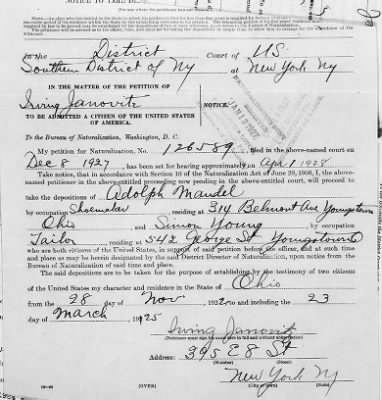 NOTICE TO TAKE
District Court of U.S.
Southern District of Ny at New York Ny
IN THE MATTER OF THE PETITION OF
Irving Janovitz
NOTICE.
TO BE ADMITTED A CITIZEN OF THE UNITED STATES OF
AMERICA.
To the Bureau of Naturalization, Washington, D. C.
My petition for Naturalization, No. 126589, filed in the above-named court on
Dec 8 1927, has been set for hearing approximately on Apr 1 1928
Take notice, that in accordance with Section 10 of the Naturalization Act of June 29, 1906, I, the above-
named petitioner in the above-entitled proceeding now pending in the above-entitled court, will proceed
to take the depositions of Adolph Mandel
by occupation Shoemaker, residing at 314 Belmont Ave Youngstown
Ohio and Simon Young, by occupation
Tailor, residing at 542 George St Youngstown
who are both citizens of the United States, in support of said petition before the officer, and at such time
and place as may be herein designated by the said District Director of Naturalization, upon notice from the
Bureau of Naturalization of said time and place.
The said depositions are to be taken for the purpose of establishing by the testimony of two citizens
of the United States my character and residence in the State of Ohio
from the 28 day of Nov, 1922 to and including the 23
day of March 1925
Irving Janovitz
(Petitioner must sign name here in full and without abbreviation)
Address: 395 E 8 St
(Number) (Street)
New York Ny
(City or town) (State)
(OVER)